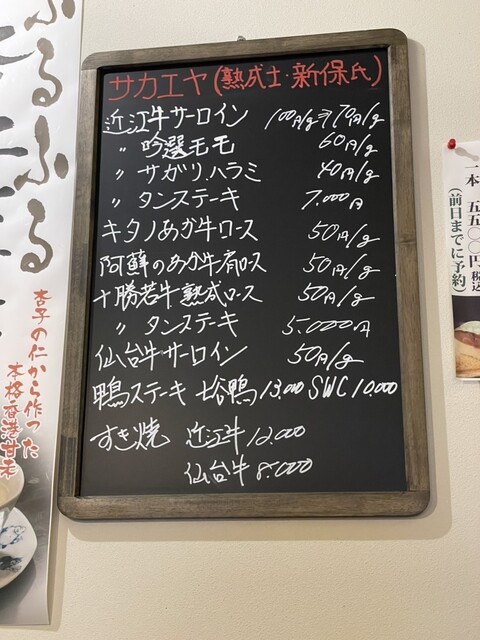 サカエヤ(熟成士・新保氏)
近江牛サーロイン 100円/g→70円/g
〃 吟選モモ 60円/g
〃 サガリ、ハラミ 40円/g
〃 タンステーキ 7.000円
キタノあか牛ロース 50円/g
阿蘇のあか牛肩ロース 50円/g
十勝若牛熟成ロース 50円/g
〃 タンステーキ 5.000円
仙台牛サーロイン 50円/g
鴨ステーキ 七谷鴨 13,000 SWC 10,000
すき焼 近江牛 12,000
仙台牛 8,000
ふるふる
杏子の仁から作った
本格香港甘未
一本 五五〇〇円(税込)
(前日までに予約)